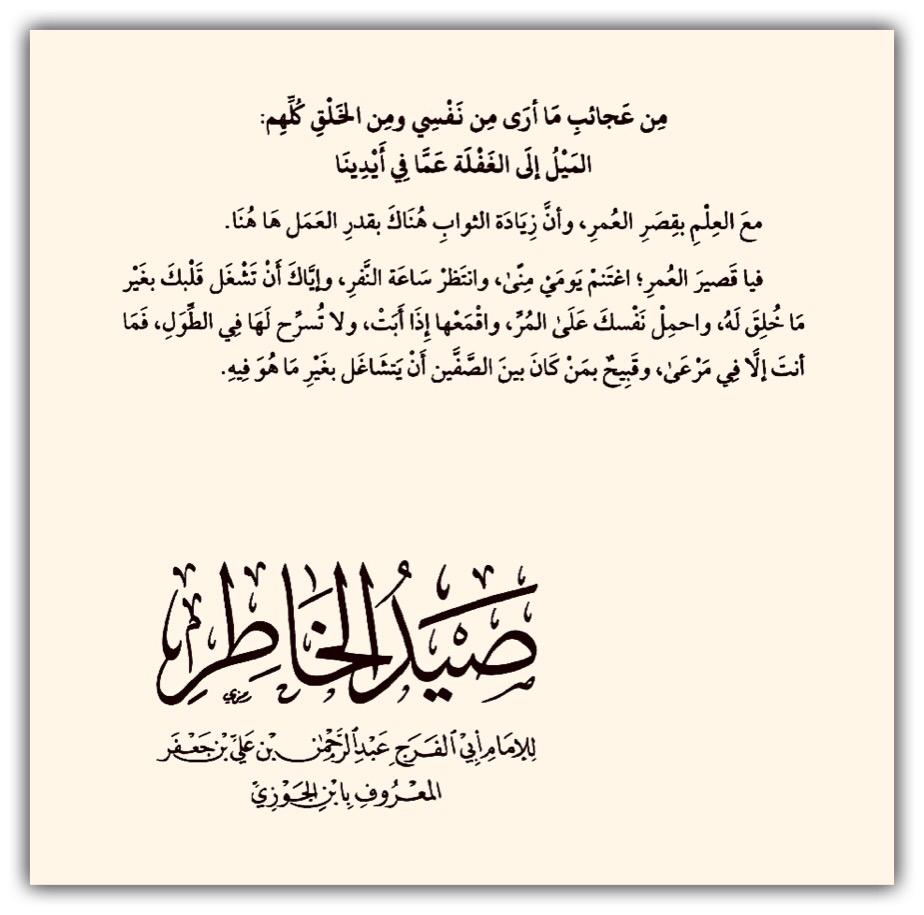 مِن عَجائبِ مَا أرَى مِن نَفْسِي ومِن الخَلْقِ كُلِّهِم:
المَيْلُ إلَى الغَفْلَة عَمَّا فِي أَيْدِينَا
معَ العِلْمِ بقِصَرِ العُمرِ، وأنَّ زِيَادَة الثوابِ هُنَاكَ بقدرِ العَمَل هَا هُنَا.
فيا قَصيرَ العُمرِ؛ اغتَنمْ يَوميَ مِنًى، وانتَظرْ سَاعَة النَّفرِ، وإيَّاكَ أَنْ تَشْغَل قَلْبكَ بغَيْر
مَا خُلِقَ لَهُ، واحمِلْ نَفْسكَ عَلَى المُرِّ، واقْمَعْها إِذَا أَبَتْ، ولا تُسرِّح لَهَا فِي الطِّوَلِ، فَمَا
أنتَ إلَّا فِي مَرْعَى، وقَبِيحٌ بمَنْ كَانَ بينَ الصَّفَّين أَنْ يَتشَاغَل بغَيْرِ مَا هُوَ فِيهِ.
صَيْدُ الخَاطِرِ
للإمَامِ أَبِي الفَرَجِ عَبْدِ الرَّحْمٰنِ بْنِ عَلِيِّ بْنِ جَعْفَر
المَعْرُوفِ بِابْنِ الجَوْزِيّ